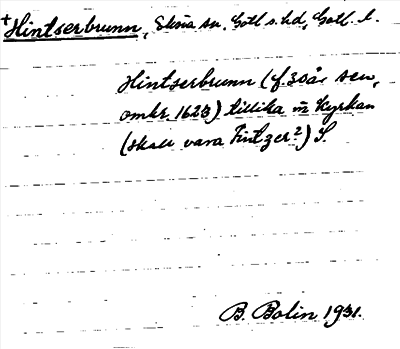 +Hintserbrunn, Stenkyrka sn. Gotl. s. hd, Gotl. l.
Hintserbrunn (f. 30 år sen,
omkr. 1623) tillika m Kyrkan
(skall vara Hintzer?) S.
B. Bolin 1931.